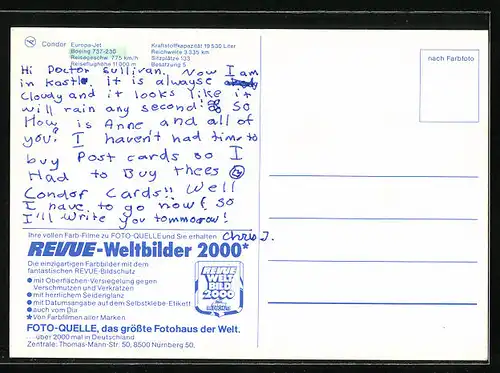 Condor Europa-Jet
Boeing 737-230
Reisegeschw. 775 km/h
Reiseflughöhe 11.000 m
Kraftstoffkapazität 19 530 Liter
Reichweite 3.335 km
Sitzplätze 133
Besatzung 5
nach Farbfoto
Hi Doctor Sullivan. Now I am
in Kastle it is alwayse
Cloudy and it looks like it
will rain any second! So
How is Anne and all of
you? I haven't had time to
buy Post cards so I
Had to Buy thees
Condor Cards!! Well
I have to go now! so
I'll write you tommorow!
Chris J.
Ihre vollen Farb-Filme zu FOTO-QUELLE und Sie erhalten
REVUE-Weltbilder 2000*
Die einzigartigen Farbbilder mit dem
fantastischen REVUE-Bildschutz
● mit Oberflächen-Versiegelung gegen
Verschmutzen und Verkratzen
● mit herrlichem Seidenglanz
● mit Datumsangabe auf dem Selbstklebe-Etikett
● auch vom Dia
*Von Farbfilmen aller Marken
REVUE
WELT
BILD
2000
FOTO-QUELLE, das größte Fotohaus der Welt.
... über 2000 mal in Deutschland
Zentrale: Thomas-Mann-Str. 50, 8500 Nürnberg 50.